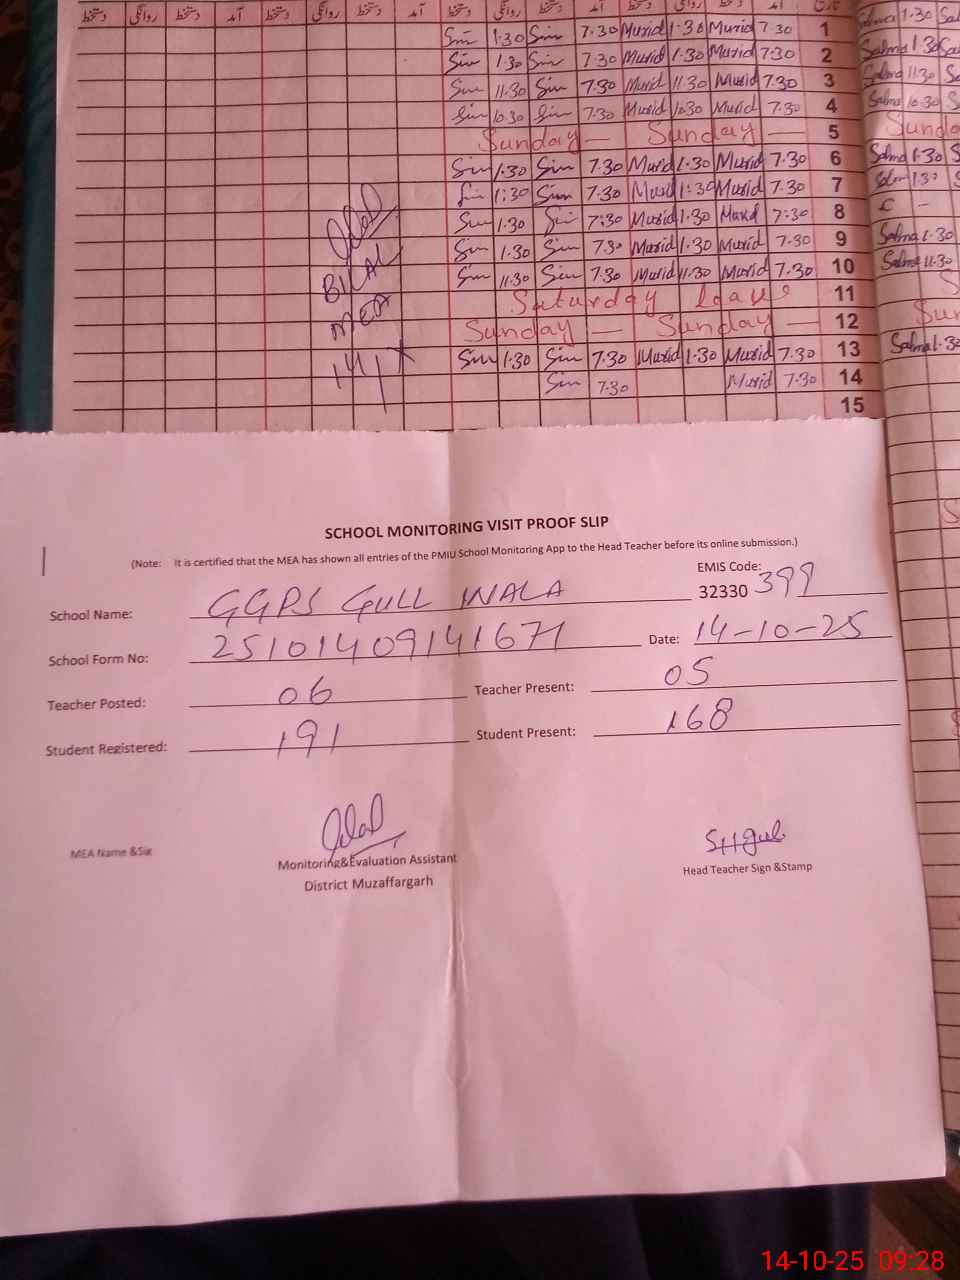 دستخط روانگی دستخط آمد دستخط روانگی دستخط آمد دستخط روانگی دستخط آمد دستخط روانگی دستخط آمد تاریخ
Sim 1.30 Sim 7.30 Murid 1.30 Murid 7.30 1 Salma 1.30
Sim 1.30 Sim 7.30 Murid 1.30 Murid 7.30 2 Salma 1.30
Sim 11.30 Sim 7.30 Murid 11.30 Murid 7.30 3 Salma 11.30
Sim 10.30 Sim 7.30 Murid 10.30 Murid 7.30 4 Salma 10.30
Sunday — Sunday — 5
Sim 1.30 Sim 7.30 Murid 1.30 Murid 7.30 6 Salma 1.30
Sim 1:30 Sim 7.30 Murid 1:30 Murid 7.30 7 1.30
Sim 1.30 Sim 7:30 Murid 1.30 Murid 7:30 8 C -
Sim 1.30 Sim 7.30 Murid 1.30 Murid 7.30 9 Salma 1.30
Sim 11.30 Sim 7.30 Murid 11.30 Murid 7.30 10 Salma 11.30
Saturday 11
Sunday — Sunday — 12
Sim 1.30 Sim 7.30 Murid 1.30 Murid 7.30 13 Salma 1.30
Sim 7.30 Murid 7.30 14
15
BILAL
MEA
SCHOOL MONITORING VISIT PROOF SLIP
(Note: It is certified that the MEA has shown all entries of the PMIU School Monitoring App to the Head Teacher before its online submission.)
EMIS Code:
School Name: GGPS GULL WALA 32330 399
School Form No: 25101409141671 Date: 14-10-25
Teacher Posted: 06 Teacher Present: 05
Student Registered: 191 Student Present: 168
MEA Name &Sig
Monitoring&Evaluation Assistant
District Muzaffargarh
Head Teacher Sign &Stamp
14-10-25 09:28